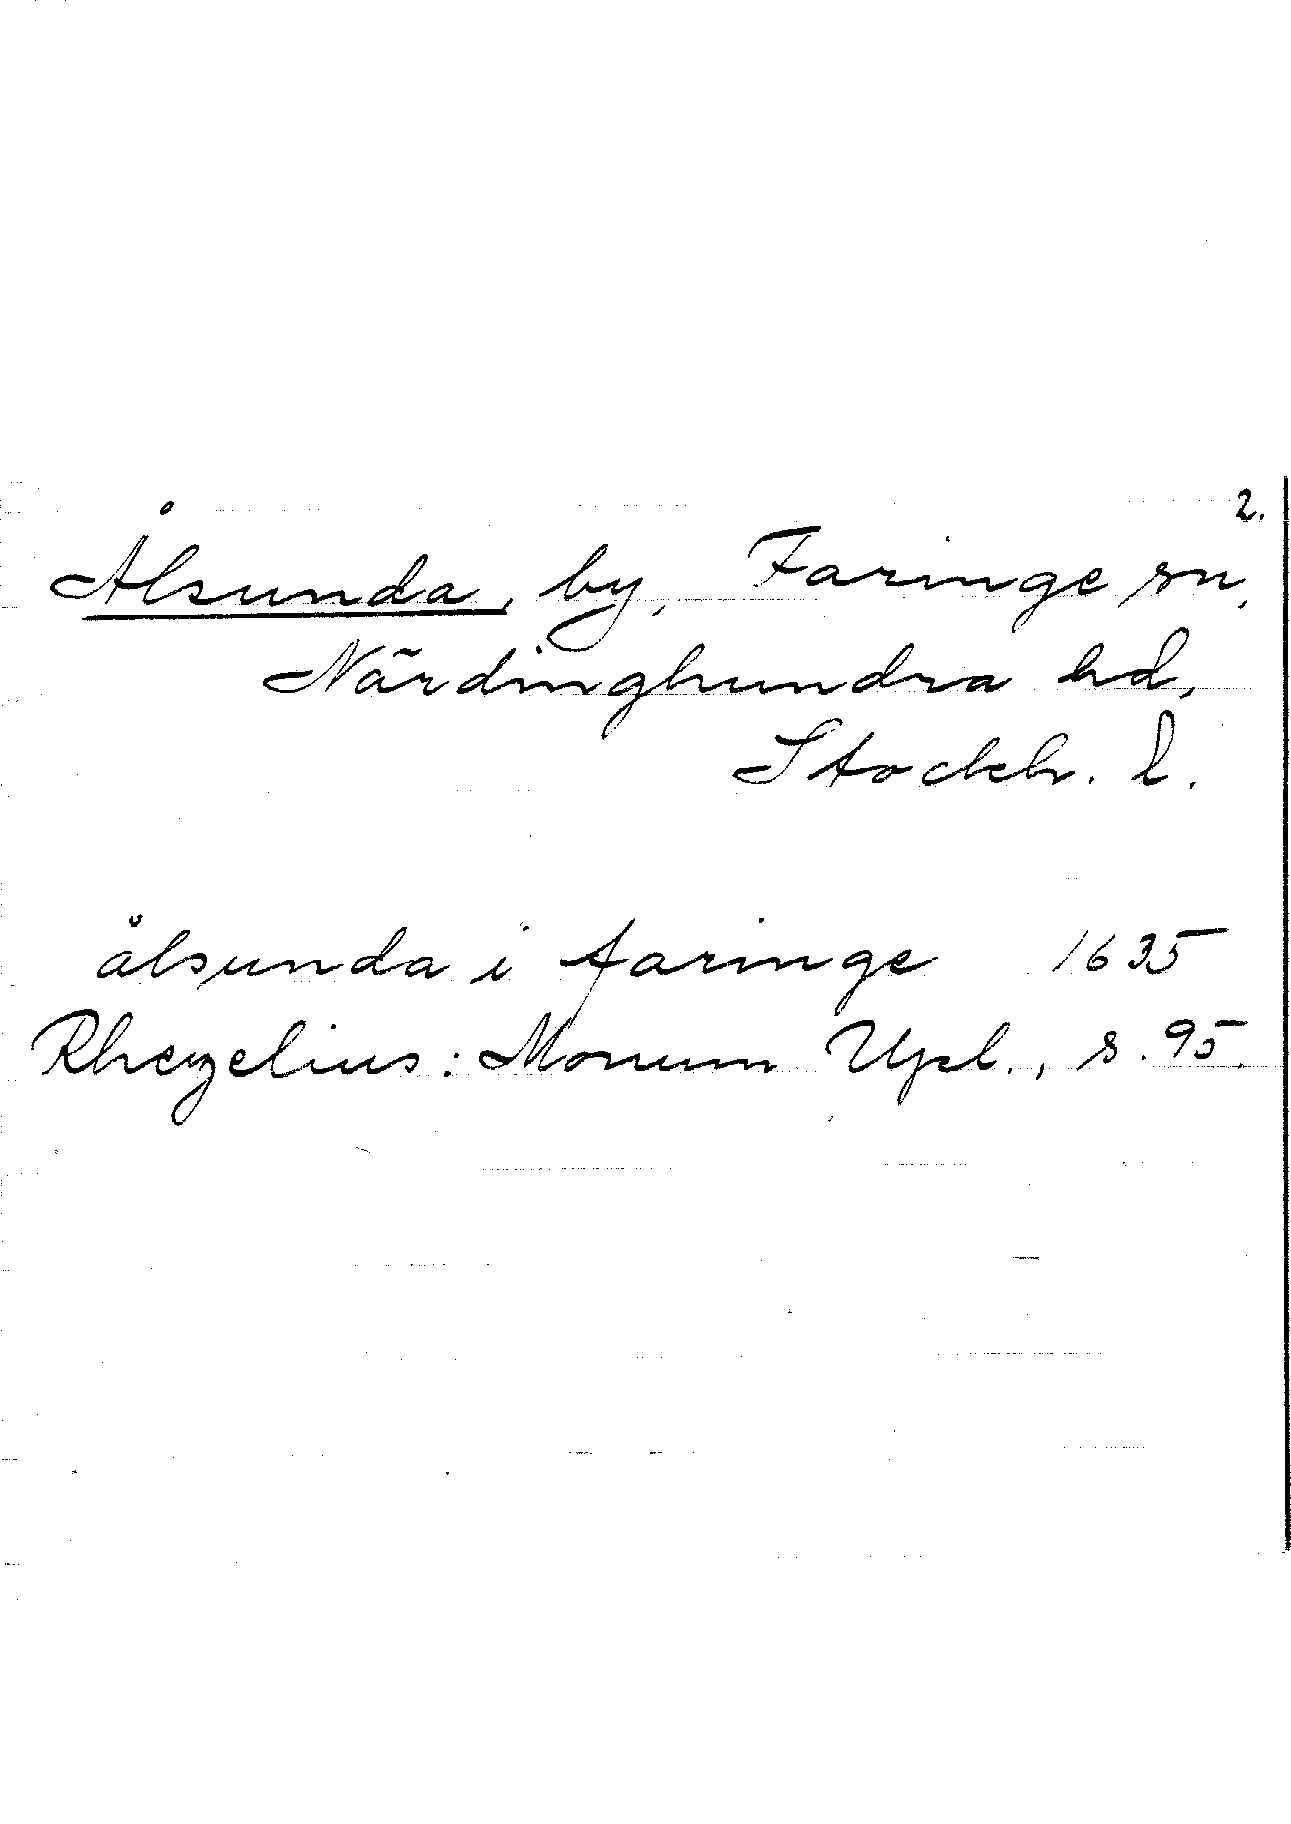 2.
Ålsunda, by, Faringe sn,
Närdinghundra hd,
Stockh. l.
ålsunda i faringe 1635
Rhezelius: Monum Upl., s. 95.